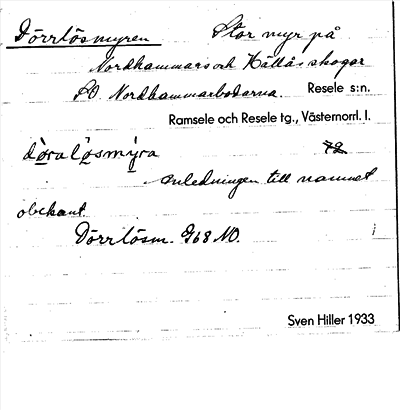 Dörrlösmyren Stor myr på
Nordhammars och Hällås skogar
SO. Nordhammarbodarna. Resele s:n.
Ramsele och Resele tg., Västernorrl. l.
döra lösmýra 72
Anledningen till namnet
obekant.
Dörrlösm. G68 NO.
Sven Hiller 1933